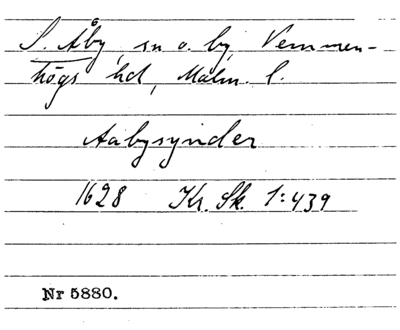 S. Åby, sn o. by, Vemmen-
högs hd, Malm. l.
Aabysynder
1628 Kr. Sk. 1:439
Nr 5880.